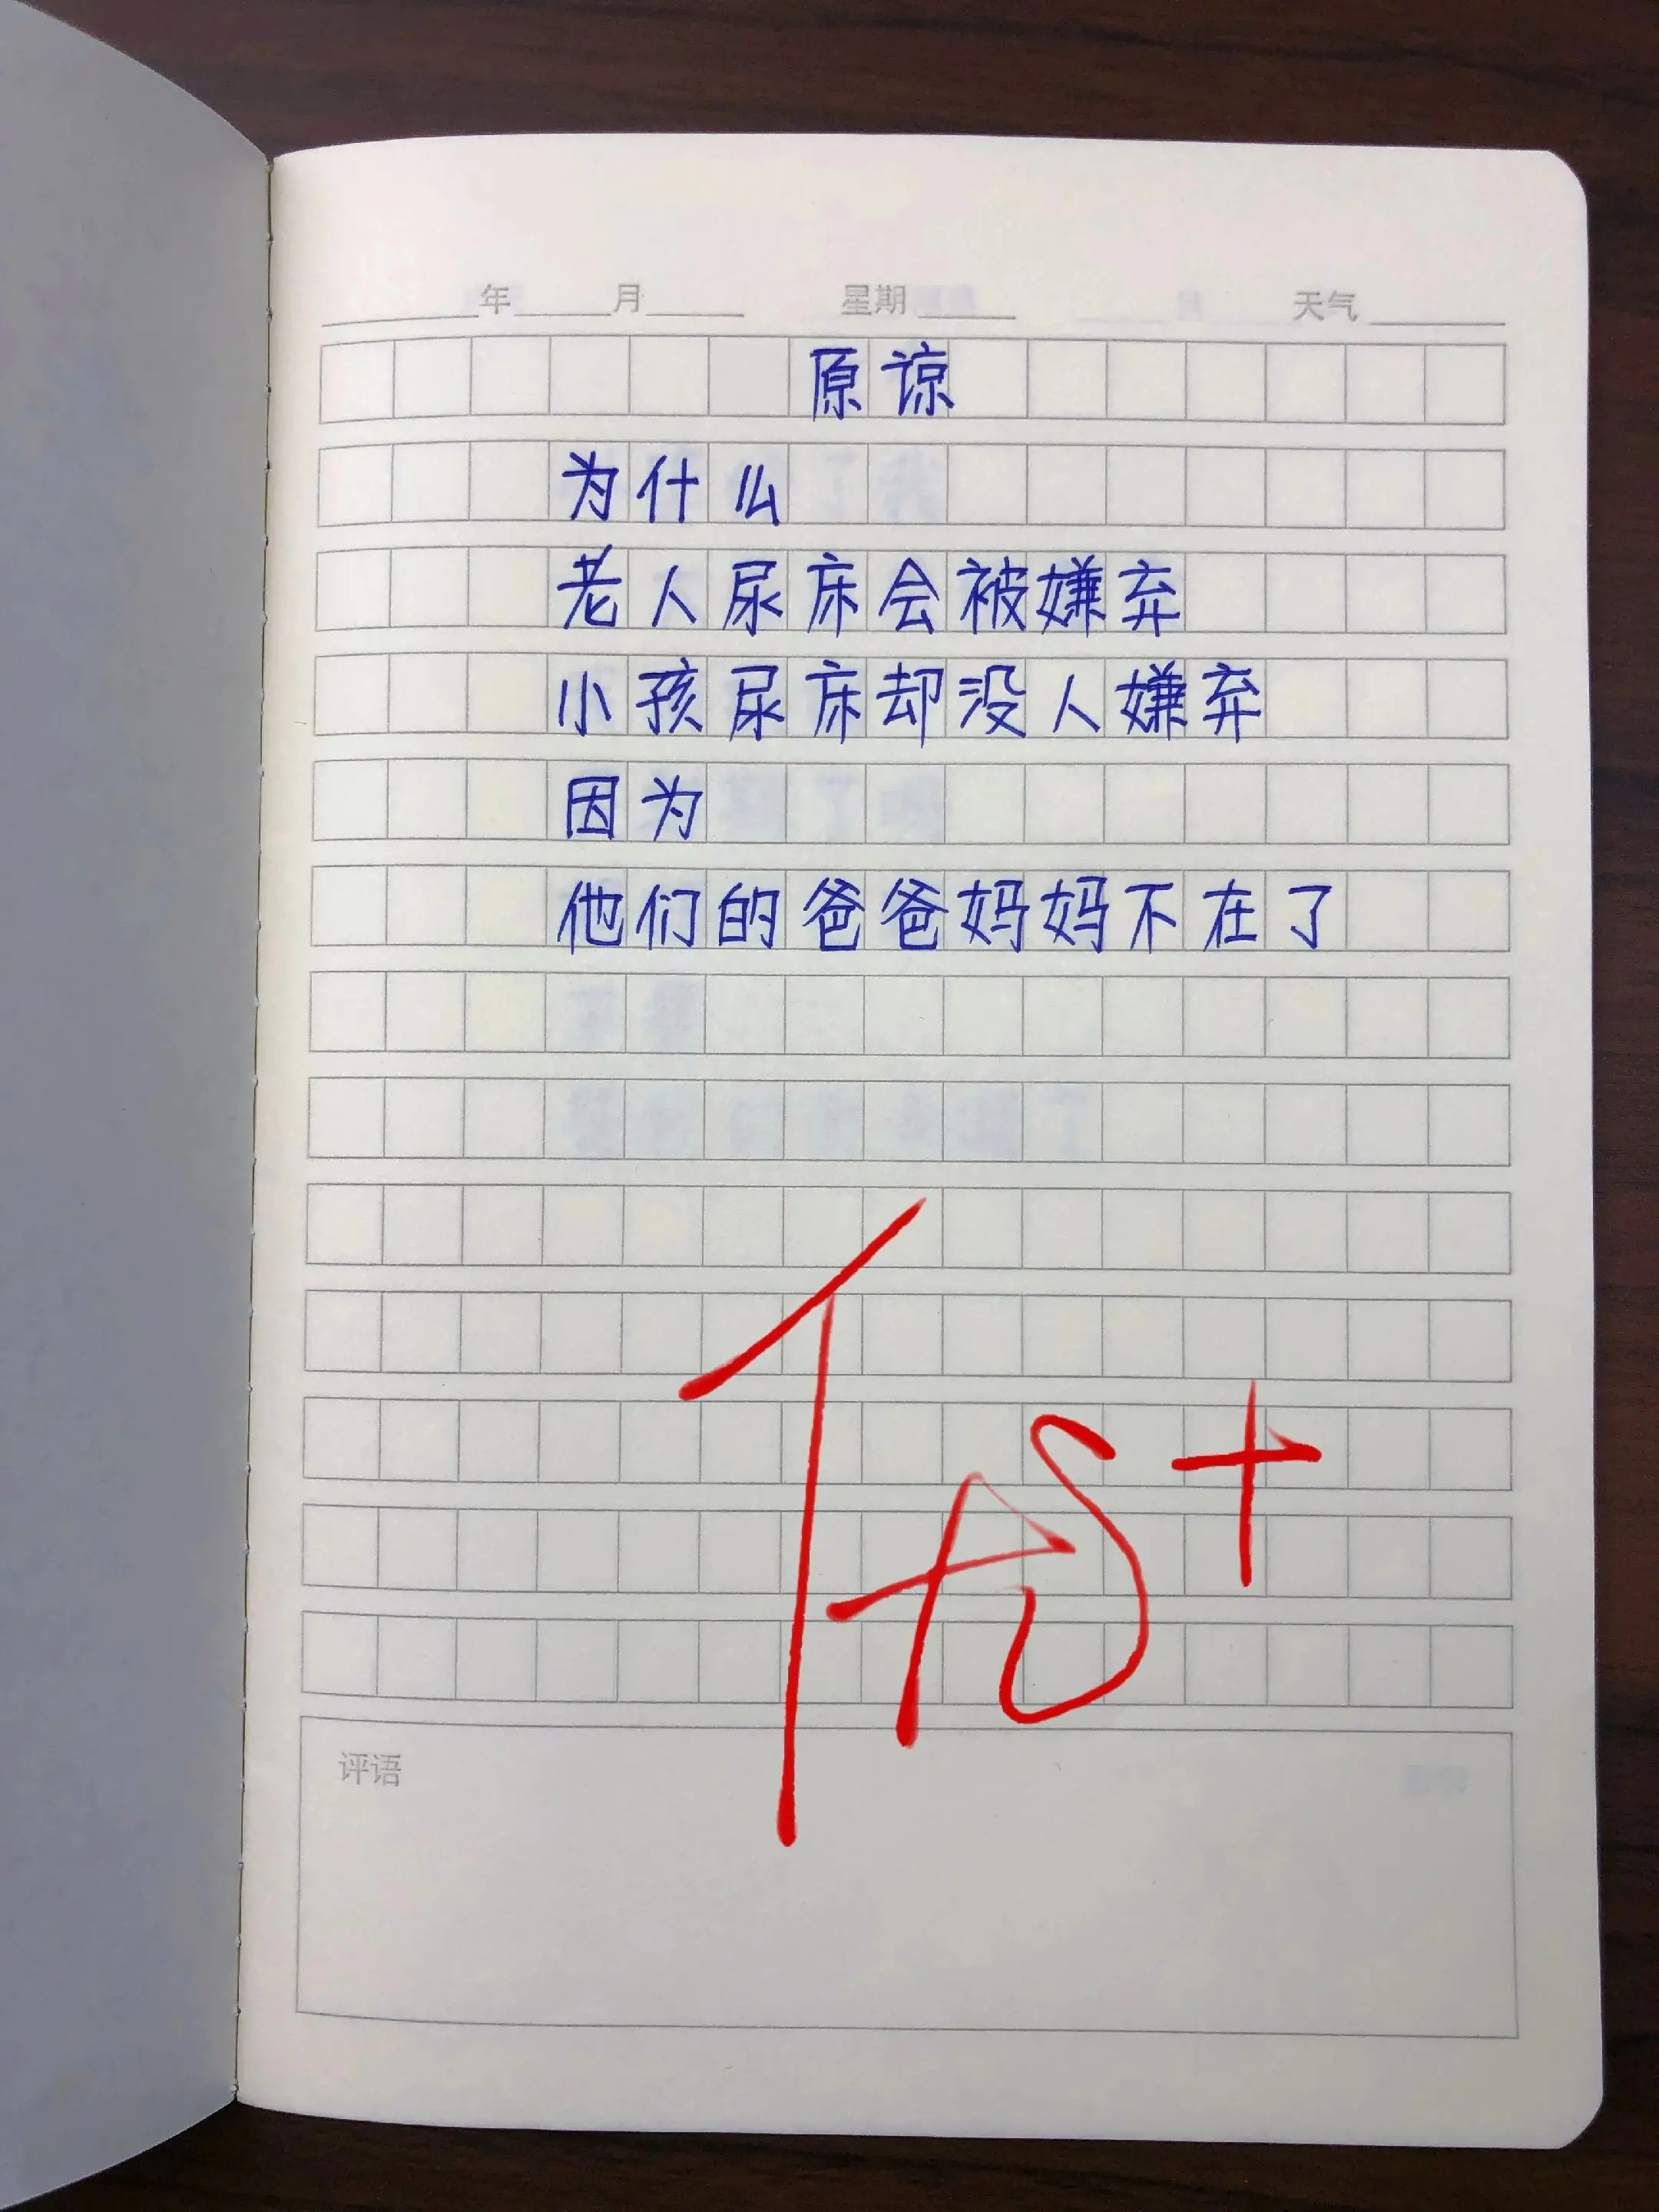 年 月 星期 天气
原谅
为什么
老人尿床会被嫌弃
小孩尿床却没人嫌弃
因为
他们的爸爸妈妈不在了
优+
评语